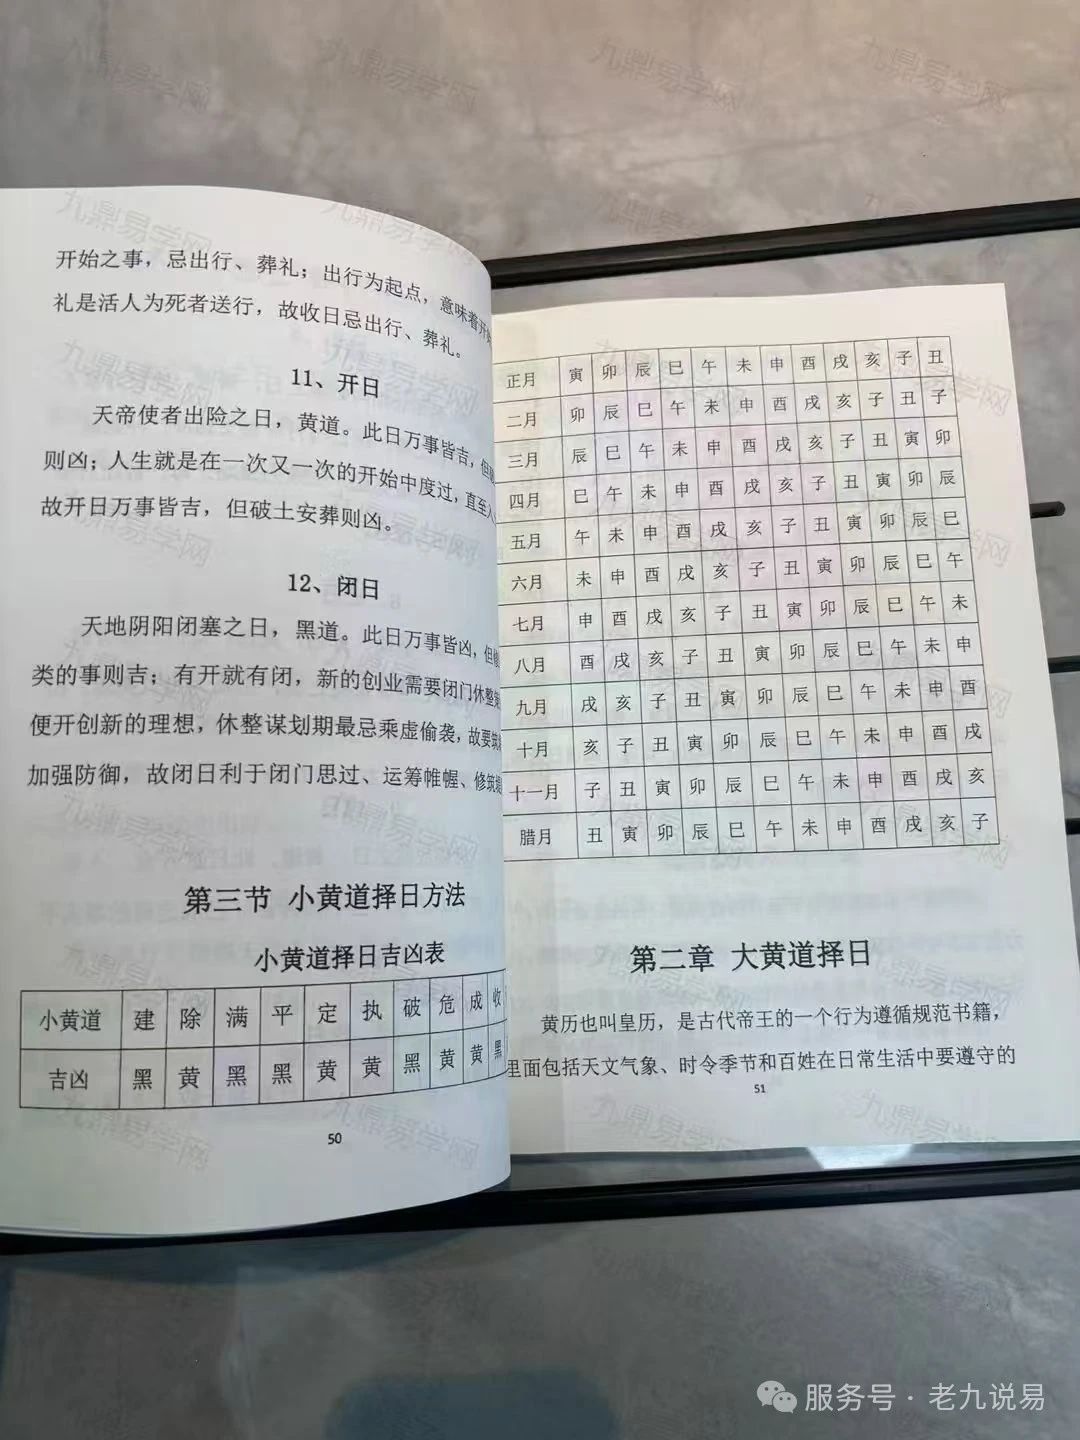 开始之事，忌出行、葬礼；出行为起点，意味着开始
礼是活人为死者送行，故收日忌出行、葬礼。
11、开日
天帝使者出险之日，黄道。此日万事皆吉，但
则凶；人生就是在一次又一次的开始中度过，直至入
故开日万事皆吉，但破土安葬则凶。
12、闭日
天地阴阳闭塞之日，黑道。此日万事皆凶，但
类的事则吉；有开就有闭，新的创业需要闭门休整
便开创新的理想，休整谋划期最忌乘虚偷袭，故要筑
加强防御，故闭日利于闭门思过、运筹帷幄、修筑
第三节 小黄道择日方法
小黄道择日吉凶表
小黄道 建 除 满 平 定 执 破 危 成 收
吉凶 黑 黄 黑 黑 黄 黄 黑 黄 黄 黑
50
正月 寅 卯 辰 巳 午 未 申 酉 戌 亥 子 丑
二月 卯 辰 巳 午 未 申 酉 戌 亥 子 丑 子
三月 辰 巳 午 未 申 酉 戌 亥 子 丑 寅 卯
四月 巳 午 未 申 酉 戌 亥 子 丑 寅 卯 辰
五月 午 未 申 酉 戌 亥 子 丑 寅 卯 辰 巳
六月 未 申 酉 戌 亥 子 丑 寅 卯 辰 巳 午
七月 申 酉 戌 亥 子 丑 寅 卯 辰 巳 午 未
八月 酉 戌 亥 子 丑 寅 卯 辰 巳 午 未 申
九月 戌 亥 子 丑 寅 卯 辰 巳 午 未 申 酉
十月 亥 子 丑 寅 卯 辰 巳 午 未 申 酉 戌
十一月 子 丑 寅 卯 辰 巳 午 未 申 酉 戌 亥
腊月 丑 寅 卯 辰 巳 午 未 申 酉 戌 亥 子
第二章 大黄道择日
黄历也叫皇历，是古代帝王的一个行为遵循规范书籍，
里面包括天文气象、时令季节和百姓在日常生活中要遵守的
51
九鼎易学网
服务号·老九说易